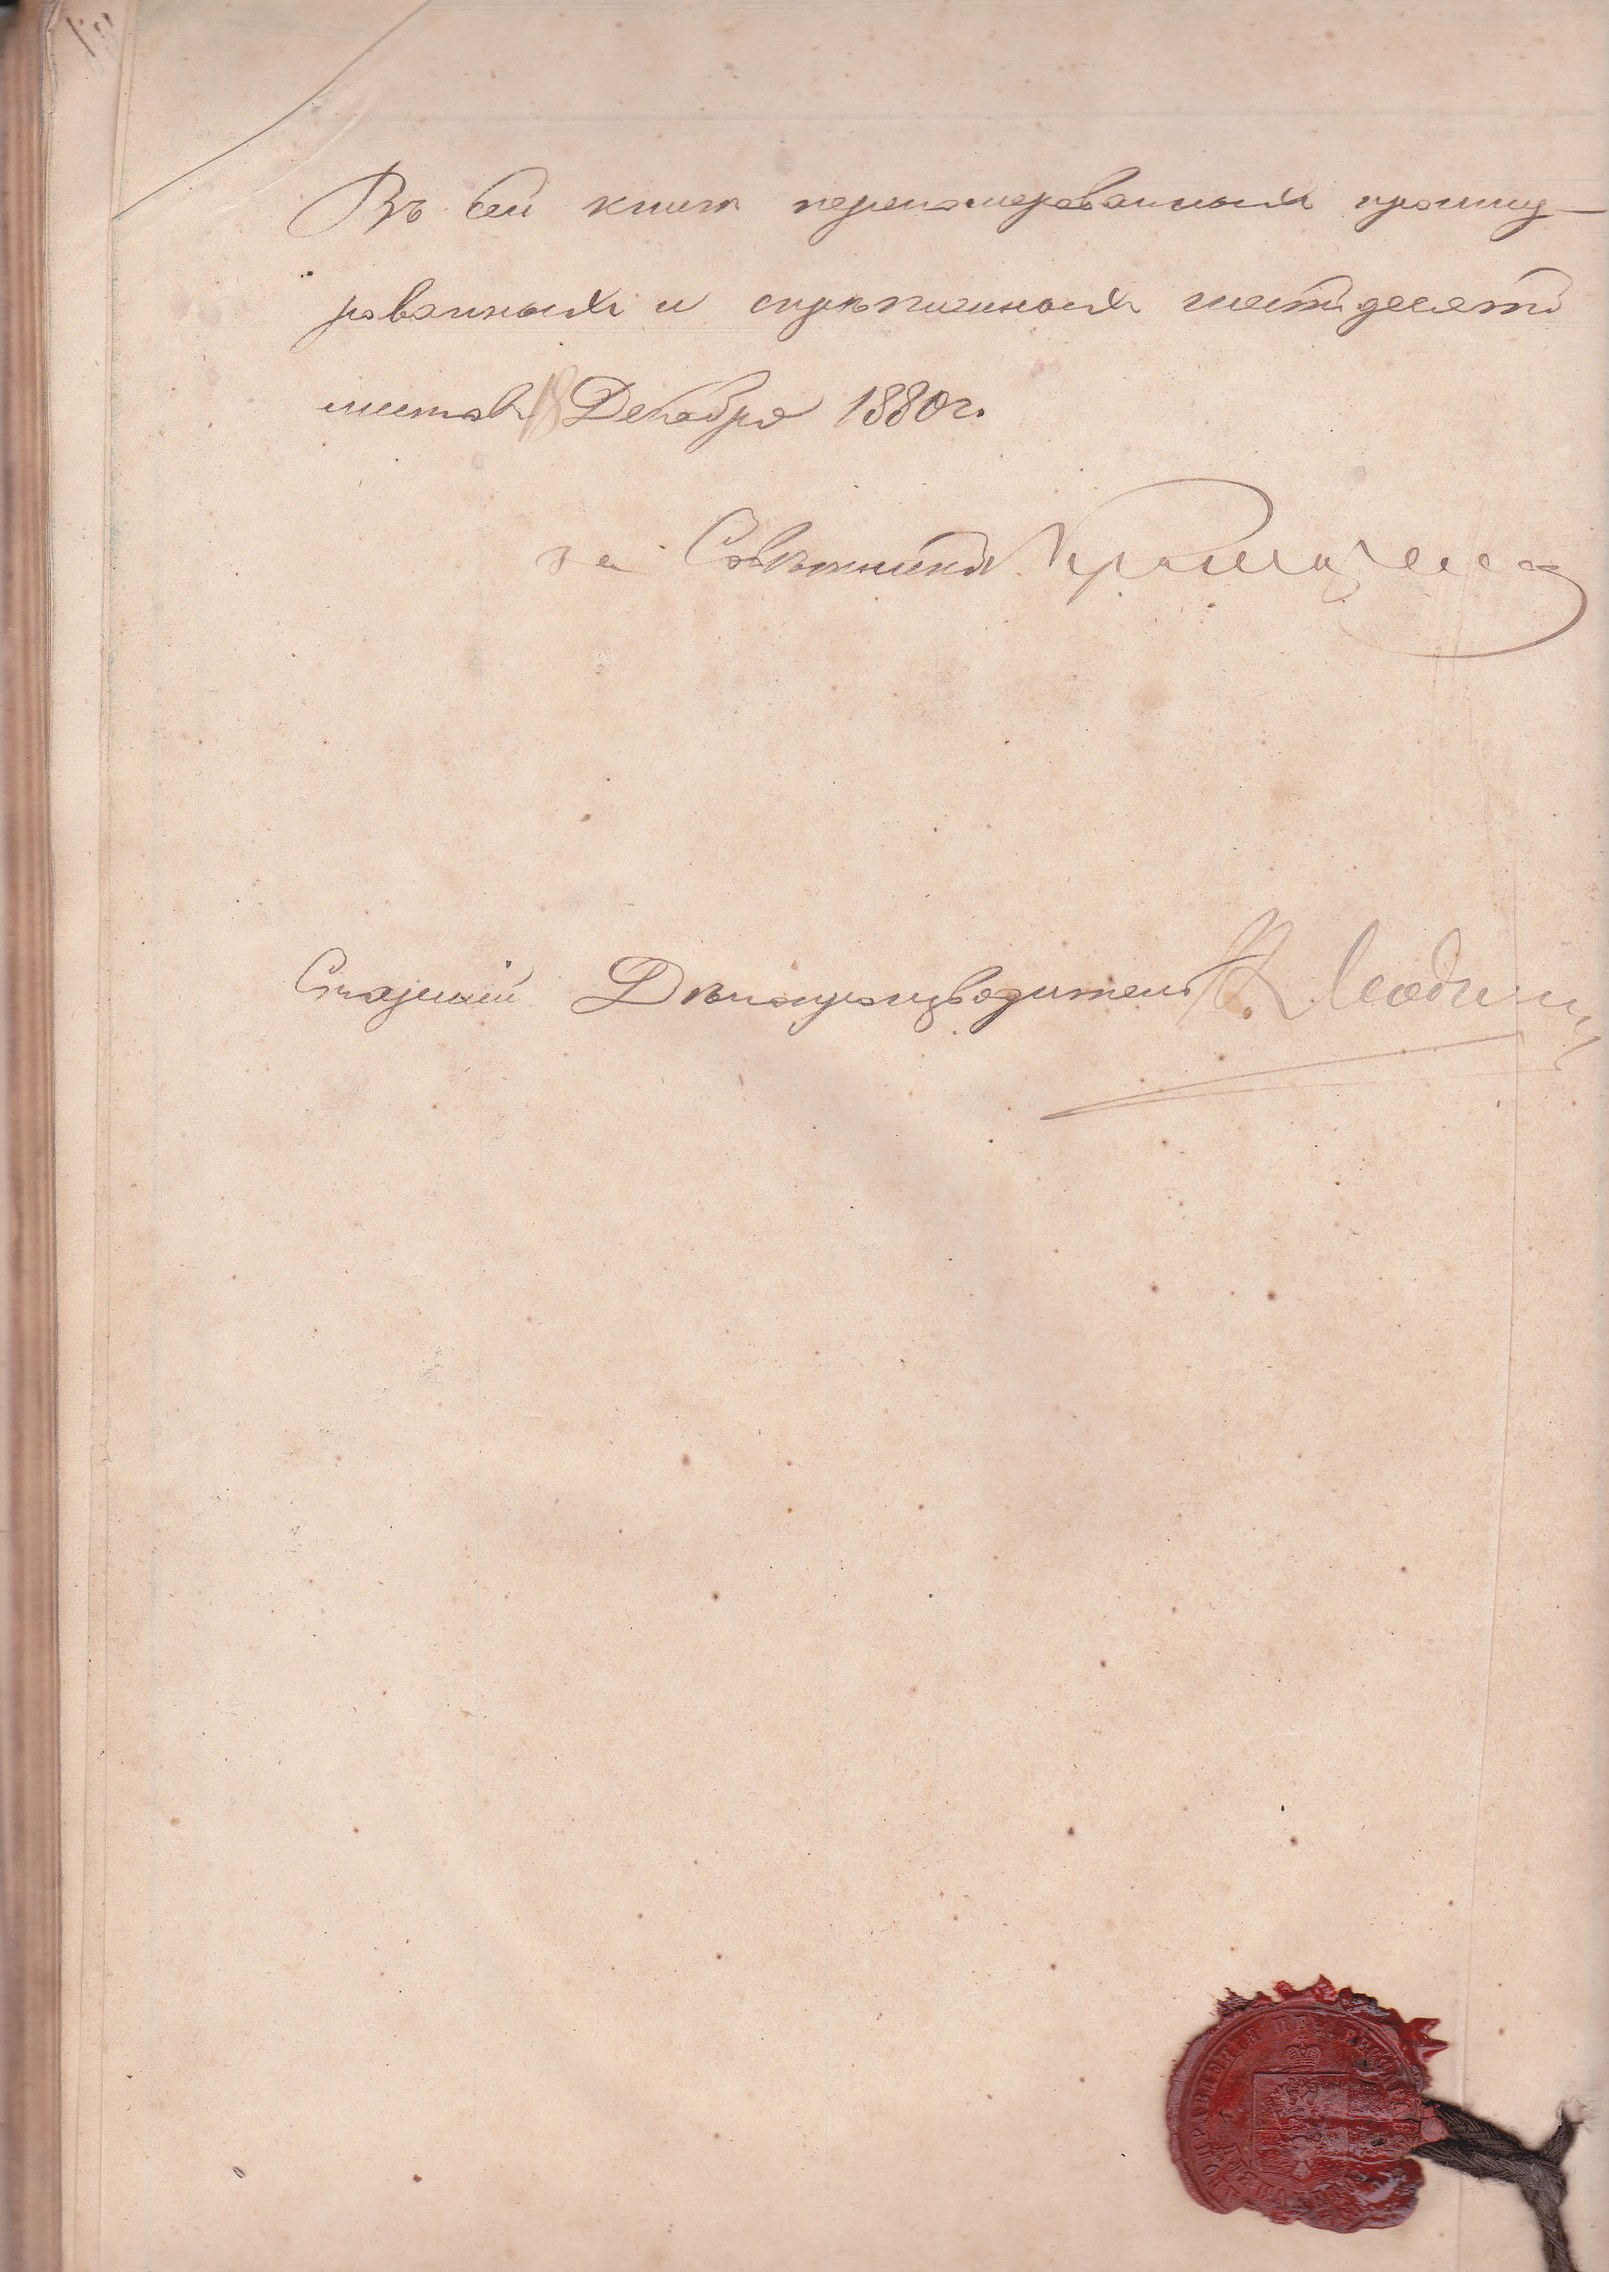 Въ сей книгѣ перенумерованныхъ прошну-
рованныхъ и скрѣпленныхъ шестьдесятъ
листовъ 18 Декабря 1880 г.
за Совѣтника
Старшій Дѣлопроизводитель